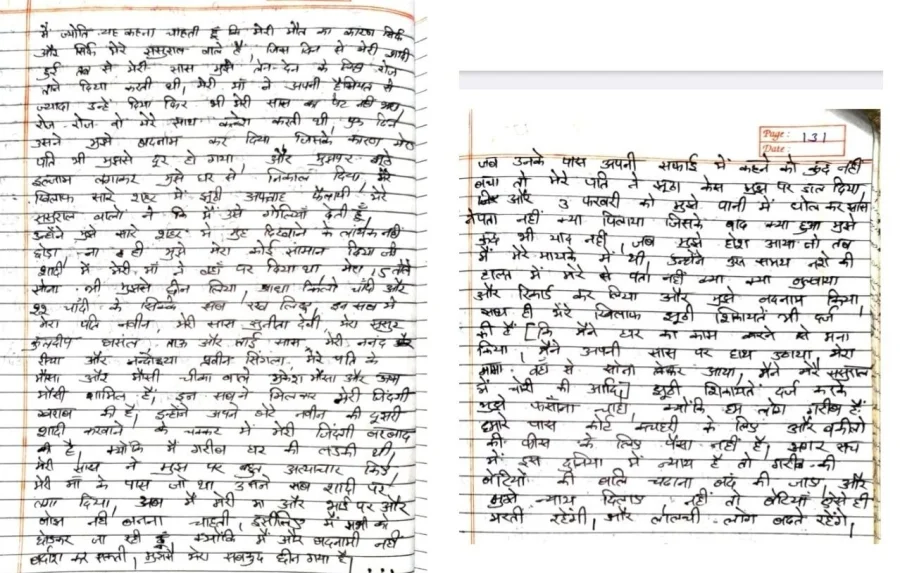 मैं ज्योति यह कहना चाहती हूँ कि मेरी मौत का कारण सिर्फ
और सिर्फ मेरे ससुराल वाले हैं, जिस दिन से मेरी शादी
हुई तब से मेरी सास मुझे लेन-देन के लिए रोज
ताने दिया करती थी, मेरी माँ ने अपनी हैसियत से
ज्यादा उन्हें दिया फिर भी मेरी सास का पेट नहीं भरा
रोज-रोज वो मेरे साथ करती थी एक दिन
उसने मुझे बदनाम कर दिया जिसके कारण मेरे
पति भी मुझसे दूर हो गया, और मुझपर झूठे
इल्जाम लगाकर मुझे घर से निकाल दिया, मेरे
खिलाफ सारे शहर में झूठी अफवाह फैलायी, मेरे
ससुराल वालो ने कि मैं उसे गोलियाँ देती हूँ,
इन्होंने मुझे सारे शहर में मुँह दिखाने के लायक नहीं
छोड़ा ना ही मुझे मेरा कोई सामान दिया जो
शादी में मेरी माँ ने वहाँ पर दिया था मेरा 15 तोले
सोना भी मुझसे छीन लिया, आधा किलो चांदी और
चांदी के सिक्के सब रख लिए, इन सब में
मेरा पति नवीन, मेरी सास सुनीता देवी मेरा ससुर
कुलदीप बांसल, ताऊ और ताई सास मेरी ननद और
रीचा और नन्दोइया प्रवीन सिंगला, मेरे पति के
मौसा और मौसी चीका वाले मुकेश मौसा और
मौसी शामिल हैं, इन सबने मिलकर मेरी जिंदगी
खराब की है, इन्होंने अपने बेटे नवीन की दूसरी
शादी करवाने के चक्कर में मेरी जिंदगी बरबाद
की है, क्योंकि मैं गरीब घर की लड़की थी,
मेरी सास ने मुझ पर बहुत अत्याचार किए,
मेरी माँ के पास जो था उसने सब शादी पर
लगा दिया, अब मैं मेरी मां और भाई पर और
बोझ नही बनना चाहती, इसलिए मैं सभी को
छोड़कर जा रही हूँ क्योंकि मैं और बदनामी नहीं
बर्दाश कर सकती, मुझसे मेरा सबकुछ छीन गया है,
...
Page: 131
Date:
जब उनके पास अपनी सफाई में कहने को कुछ नहीं
बचा तो मेरे पति ने झूठा केस मुझ पर डाल दिया,
और 3 फरवरी को मुझे पानी में घोल कर सास
ने पता नहीं क्या पिलाया जिसके बाद क्या हुआ मुझे
कुछ भी याद नहीं, जब मुझे होश आया तो तब
मैं मेरे मायके में थी, उन्होंने उस समय नशे की
हालत में मेरे से पता नहीं क्या-क्या बुलवाया
और रिकार्ड कर लिया और मुझे बदनाम किया,
साथ ही मेरे खिलाफ झूठी शिकायतें भी दर्ज
की हैं [कि मैंने घर का काम करने से मना
किया, मैंने अपनी सास पर हाथ उठाया, मेरा
मामा वहाँ से सोना लेकर आया, मैंने मेरे ससुराल
में चोरी की आदि] झूठी शिकायतें दर्ज करके
मुझे फसाँना चाहा, क्योंकि हम लोग गरीब हैं
हमारे पास कोर्ट कचहरी के लिए और वकीलो
की फीस के लिए पैसा नहीं है, अगर सच
में इस दुनिया में न्याय है तो गरीब की
बेटियों की बलि चढ़ाना बंद की जाए, और
मुझे न्याय दिलाए नहीं तो बेटियाँ ऐसे ही
मरती रहेंगी, और लालची लोग बढ़ते रहेंगे,